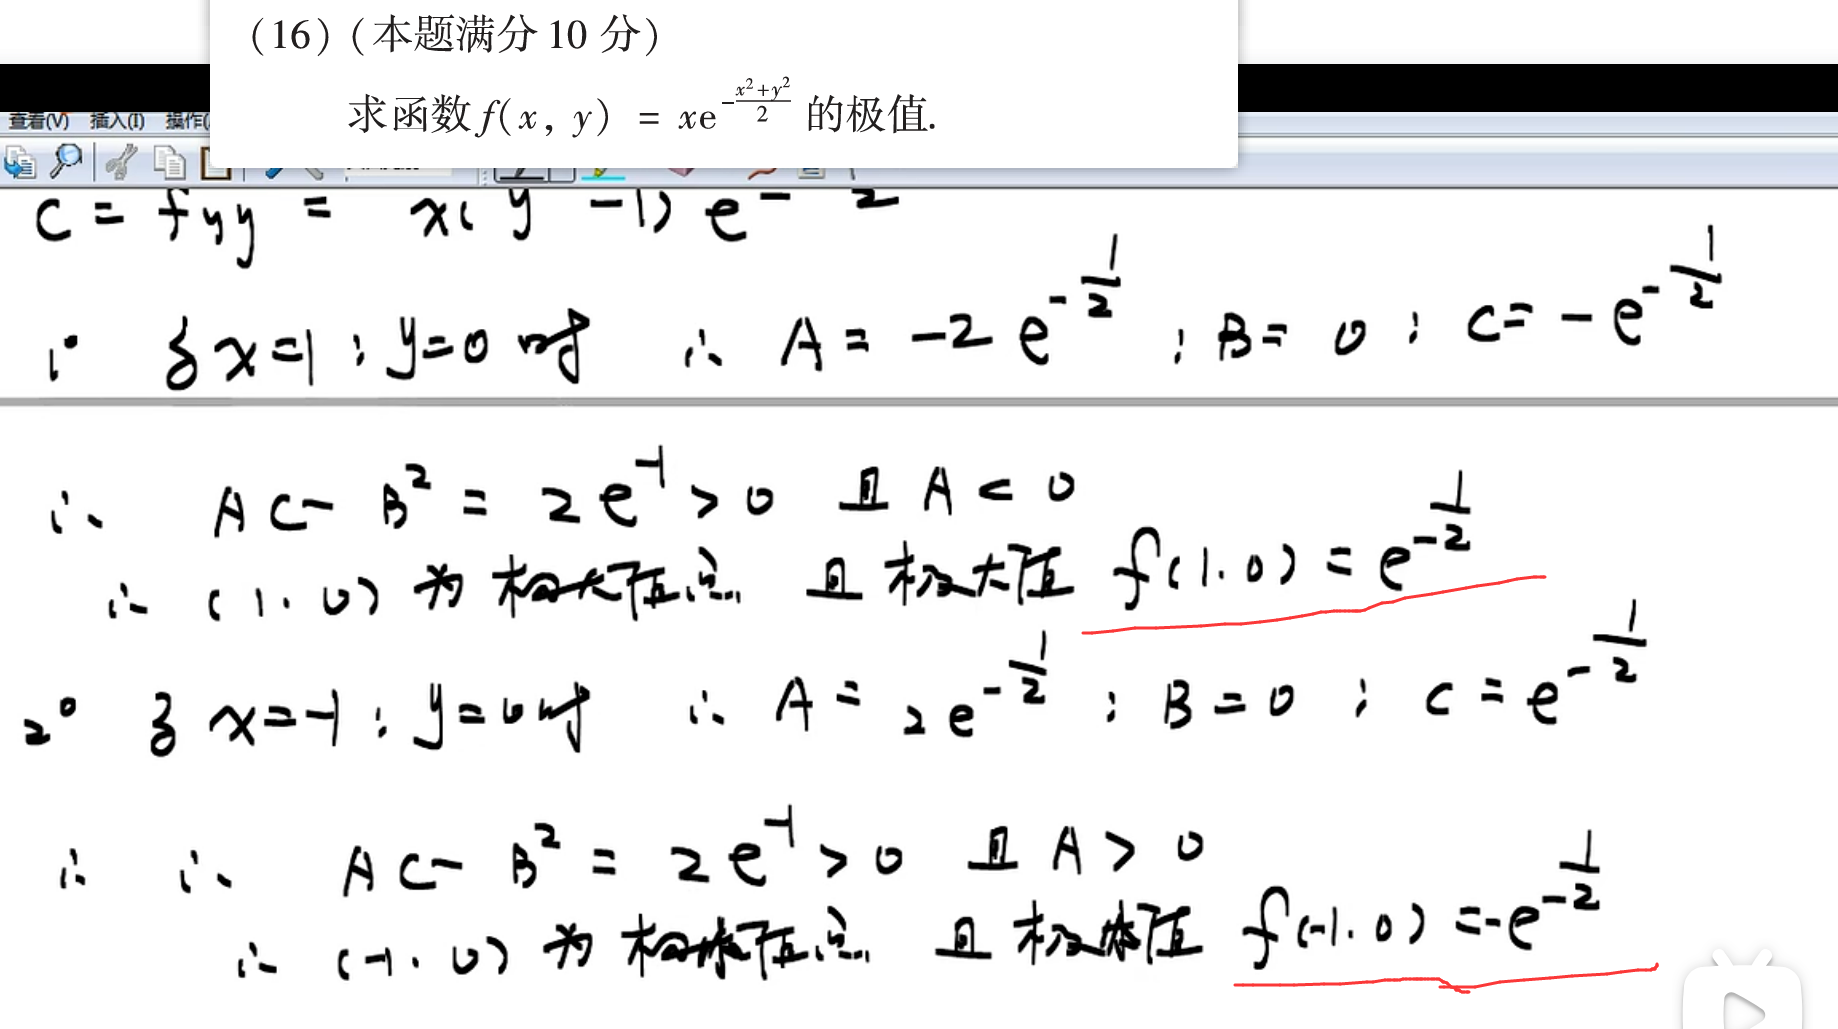 (16) (本题满分 10 分)
求函数 f(x, y) = xe^{-\frac{x^2+y^2}{2}} 的极值.
查看(V) 插入(I) 操作(
C = fyy = x(y -1) e^{- 2}
1° 当 x=1 ; y=0 时 ∴ A = -2 e^{-\frac{1}{2}} ; B = 0 ; C = -e^{-\frac{1}{2}}
∴ AC - B² = 2e^{-1} > 0 且 A < 0
∴ (1, 0) 为 极大值点 且 极大值 f(1, 0) = e^{-\frac{1}{2}}
2° 当 x=-1 ; y=0 时 ∴ A = 2e^{-\frac{1}{2}} ; B = 0 ; C = e^{-\frac{1}{2}}
∴ ∴ AC - B² = 2e^{-1} > 0 且 A > 0
∴ (-1, 0) 为 极 值点 且 极 值 f(-1, 0) = -e^{-\frac{1}{2}}